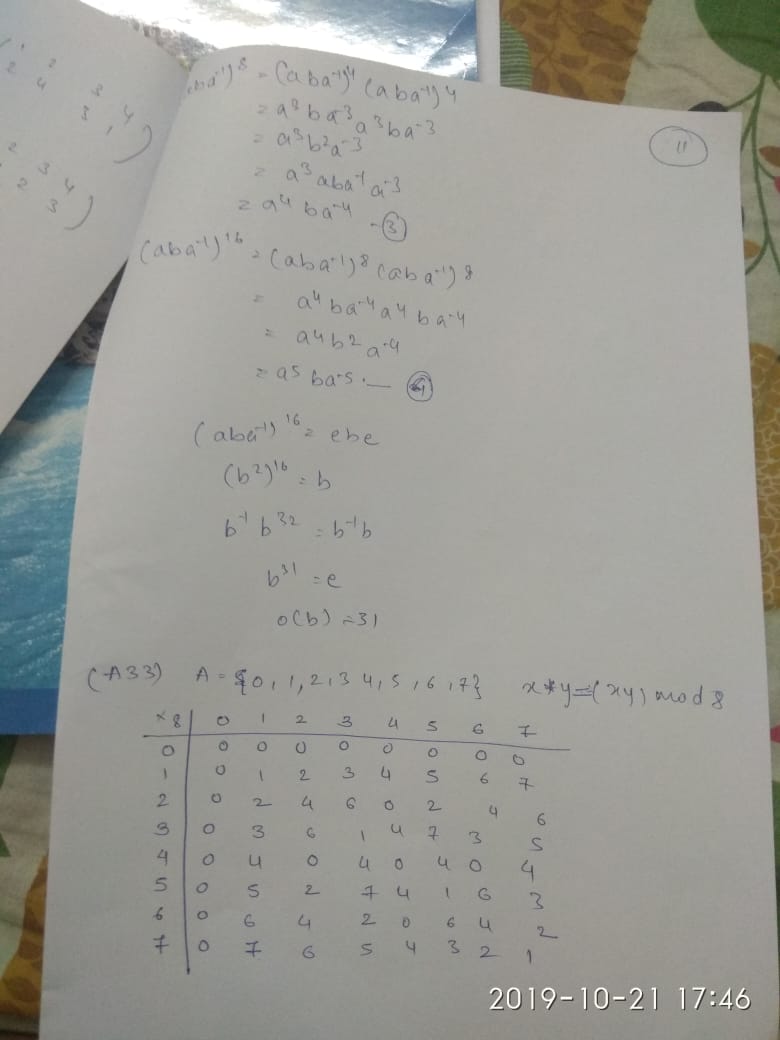 1 2 3 4
2 4 3 1
2 3 4
2 3
(aba⁻¹)⁸ = (aba⁻¹)⁴ (aba⁻¹)⁴
= a³ba⁻³a³ba⁻³
= a³b²a⁻³
= a³aba⁻¹a⁻³
= a⁴ba⁻⁴ - ③
11
(aba⁻¹)¹⁶ = (aba⁻¹)⁸ (aba⁻¹)⁸
= a⁴ba⁻⁴a⁴ba⁻⁴
= a⁴b²a⁻⁴
= a⁵ba⁻⁵ . — ④
(aba⁻¹)¹⁶ = ebe
(b²)¹⁶ = b
b⁻¹b³² = b⁻¹b
b³¹ = e
o(b) = 31
(A33) A = {0, 1, 2, 3 4, 5, 6, 7} x*y=(xy) mod 8
×8 0 1 2 3 4 5 6 7
0 0 0 0 0 0 0 0 0
1 0 1 2 3 4 5 6 7
2 0 2 4 6 0 2 4 6
3 0 3 6 1 4 7 3 5
4 0 4 0 4 0 4 0 4
5 0 5 2 7 4 1 6 3
6 0 6 4 2 0 6 4 2
7 0 7 6 5 4 3 2 1
2019-10-21 17:46